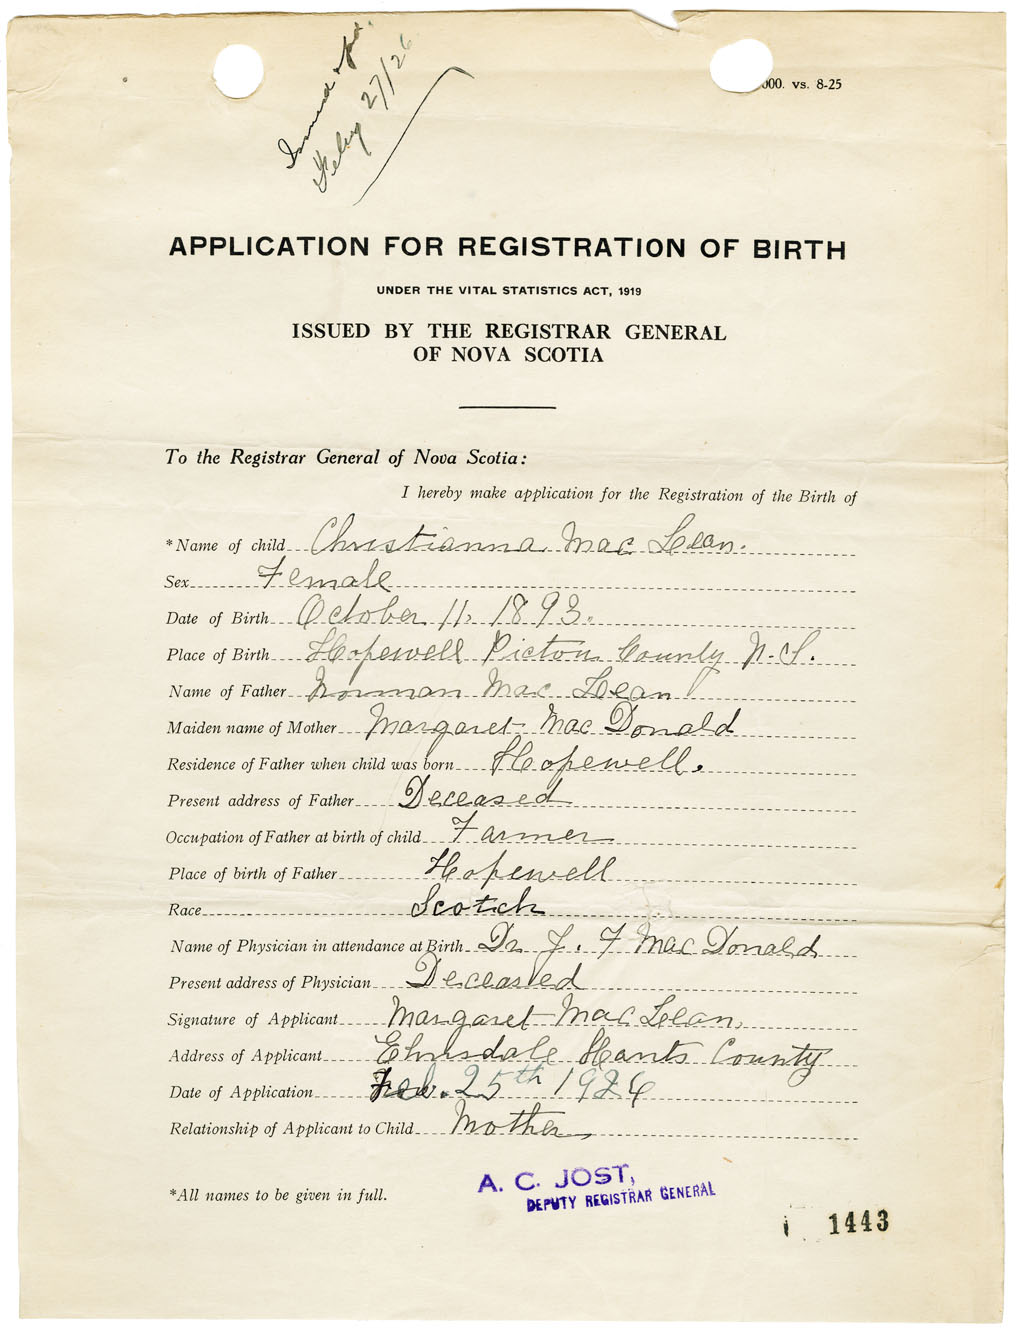 Issued & pd.
Feby 27/26
000. vs. 8-25
APPLICATION FOR REGISTRATION OF BIRTH
UNDER THE VITAL STATISTICS ACT, 1919
ISSUED BY THE REGISTRAR GENERAL
OF NOVA SCOTIA
To the Registrar General of Nova Scotia:
I hereby make application for the Registration of the Birth of
*Name of child Christianna Mac Lean.
Sex Female
Date of Birth October 11, 1893.
Place of Birth Hopewell Pictou County N.S.
Name of Father Norman Mac Lean
Maiden name of Mother Margaret Mac Donald
Residence of Father when child was born Hopewell.
Present address of Father Deceased
Occupation of Father at birth of child Farmer
Place of birth of Father Hopewell
Race Scotch
Name of Physician in attendance at Birth Dr J. F Mac Donald
Present address of Physician Deceased
Signature of Applicant Margaret Mac Lean,
Address of Applicant Elmsdale Hants County
Date of Application Feb. 25th 1926
Relationship of Applicant to Child Mother
*All names to be given in full.
A. C. JOST,
DEPUTY REGISTRAR GENERAL
1443